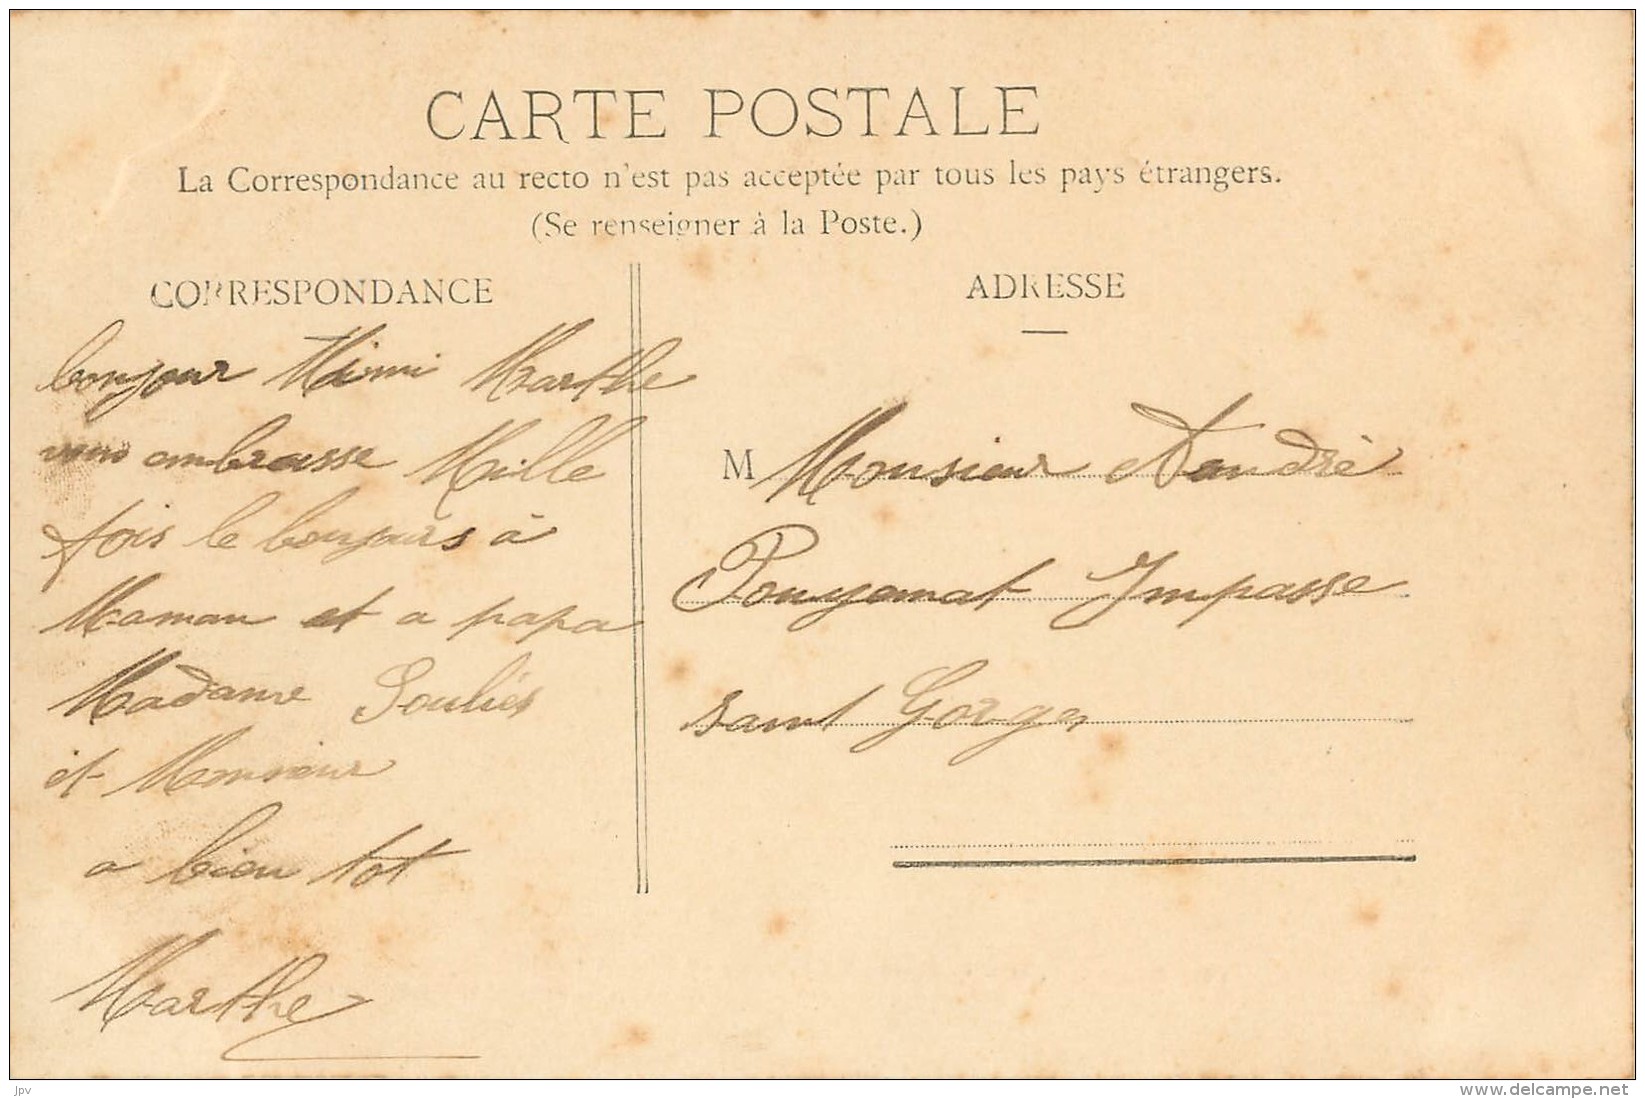 CARTE POSTALE
La Correspondance au recto n'est pas acceptée par tous les pays étrangers.
(Se renseigner à la Poste.)
CORRESPONDANCE
bonjour Mimi Marthe
vous ambrasse Mille
fois le bonjours à
Maman et a papa
Madame Souliés
et Monsieur
a bien tot
Marthe
ADRESSE
M Monsieur Andrè
Pouyamat Impasse
saint Gorges
jpv
delcampe.net